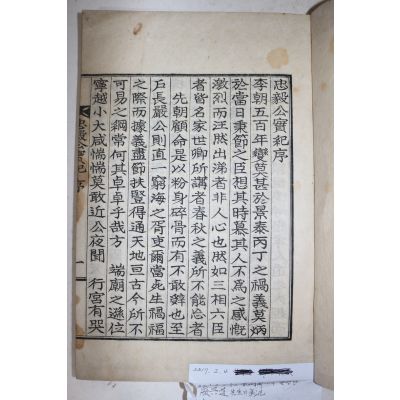 忠毅公實紀序
李朝五百年變莫甚於景泰丙丁之禍義莫炳
於當日秉節之臣想其時慕其人不爲之感慨
激烈而汪然出涕者非人心也然如三相六臣
者皆名家世卿所講者春秋之義所不能忘者
先朝顧命是以粉身碎骨而有不敢辭也至
戶長嚴公則直一窮海之胥吏爾當死生禍福
之際而據義盡節扶豎得通天地亘古今所不
可易之綱常何其卓卓乎哉方 端廟之遜位
寧越小大咸惴惴莫敢近公夜聞 行宮有哭
忠毅公實紀 序 一
2017. 2. 4